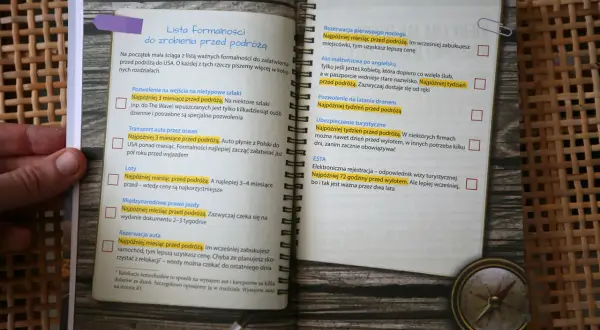 Lista formalności
do zrobienia przed podróżą
Na początek mała ściąga z listą ważnych formalności do załatwienia
przed podróżą do USA. O każdej z tych rzeczy piszemy więcej w kolej-
nych rozdziałach.
Pozwolenia na wejścia na nietypowe szlaki
Najpóźniej 3 miesiące przed podróżą. Na niektóre szlaki
(np. do The Wave) wpuszczanych jest tylko kilkadziesiąt osób
dziennie i potrzebne są specjalne pozwolenia
Transport auta przez ocean
Najpóźniej 3 miesiące przed podróżą. Auto płynie z Polski do
USA ponad miesiąc. Formalności najlepiej zacząć załatwiać już
pół roku przed wyjazdem
Loty
Najpóźniej miesiąc przed podróżą. A najlepiej 3–4 miesiące
przed – wtedy ceny są najkorzystniejsze
Międzynarodowe prawo jazdy
Najpóźniej miesiąc przed podróżą. Zazwyczaj czeka się na
wydanie dokumentu 2–3 tygodnie
Rezerwacja auta
Najpóźniej miesiąc przed podróżą. Im wcześniej zabukujesz
samochód, tym lepszą uzyskasz cenę. Chyba że planujesz sko-
rzystać z relokacji* – wtedy można czekać do ostatniego dnia
* Relokacja samochodów to sposób na wynajem aut i kamperów za kilka
dolarów za dzień. Szczegółowo opisujemy to w rozdziale: Wynajem auta
na stronie
Rezerwacja pierwszego noclegu
Najpóźniej miesiąc przed podróżą. Im wcześniej zabukujesz
miejscówki, tym uzyskasz lepszą cenę
Akt małżeństwa po angielsku
Tylko jeśli jesteś kobietą, która dopiero co wzięła ślub,
a w paszporcie widnieje stare nazwisko. Najpóźniej tydzień
przed podróżą. Zazwyczaj dostaje się od ręki
Pozwolenie na latanie dronem
Najpóźniej tydzień przed podróżą
Ubezpieczenie turystyczne
Najpóźniej tydzień przed podróżą. W niektórych firmach
można nawet dzień przed wylotem, w innych potrzeba kilku
dni, zanim zacznie obowiązywać
ESTA
Elektroniczna rejestracja – odpowiednik wizy turystycznej.
Najpóźniej 72 godziny przed wylotem. Ale lepiej wcześniej,
bo i tak jest ważna przez dwa lata